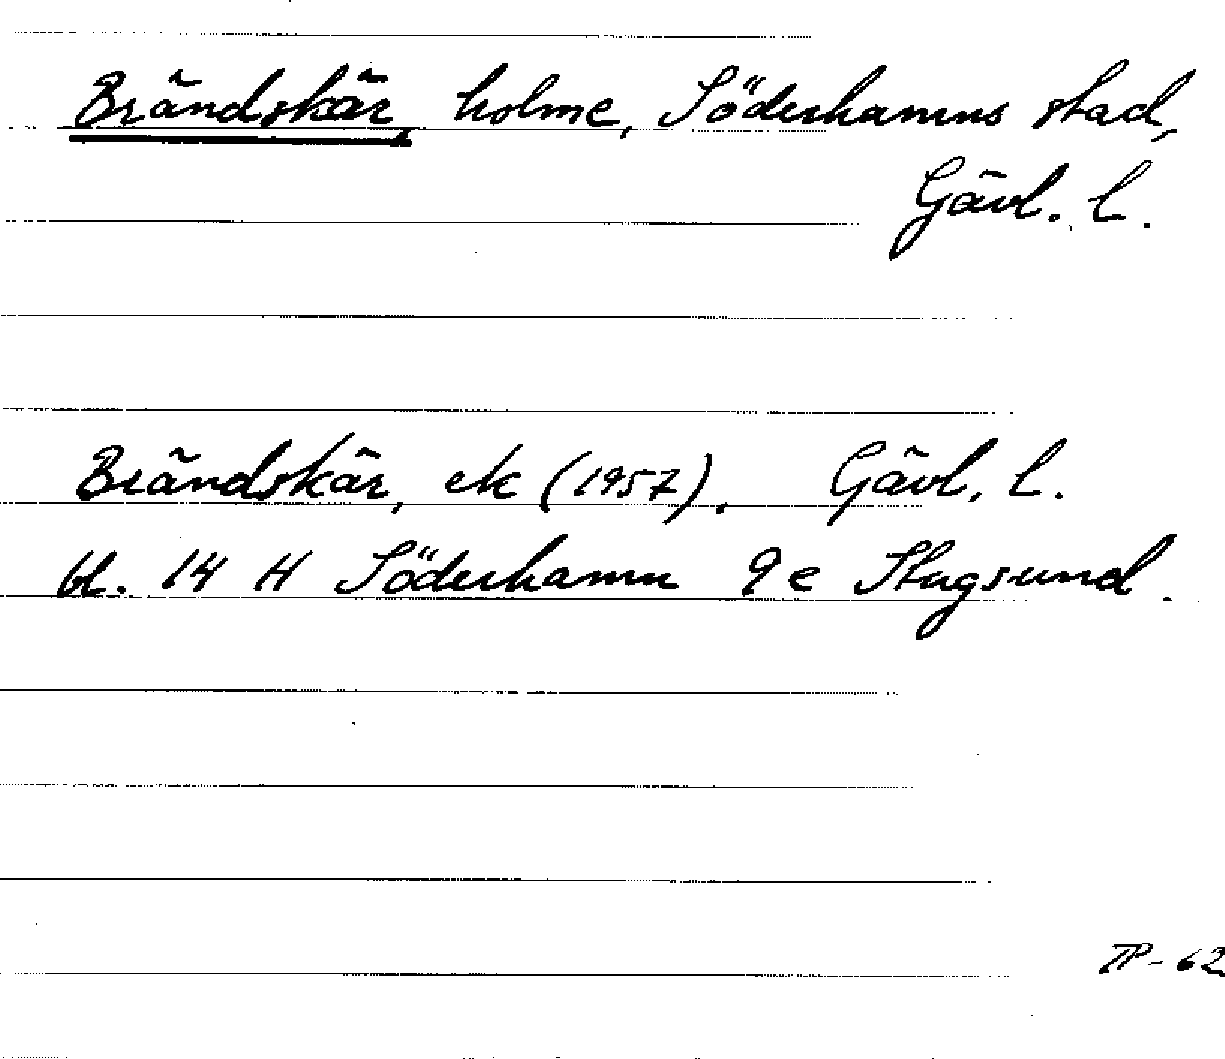 Brändskär, holme, Söderhamns stad,
Gävl. l.
Brändskär, ek (1957), Gävl. l.
bl. 14 H Söderhamn 9 e Stugsund.
TP-62